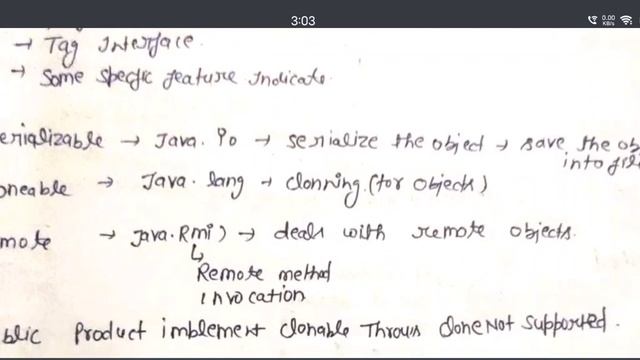 3:03
0.00
KB/s
→ Tag Interface.
→ Some Specfic feature Indicate.
erializable → Java.io → serialize the object → save the ob
into fil
oneable → Java.lang → clonning.(for objects)
mote → java.Rmi) → deals with remote objects.
Remote method
invocation
blic Product implement clonable Throws CloneNot Supported.